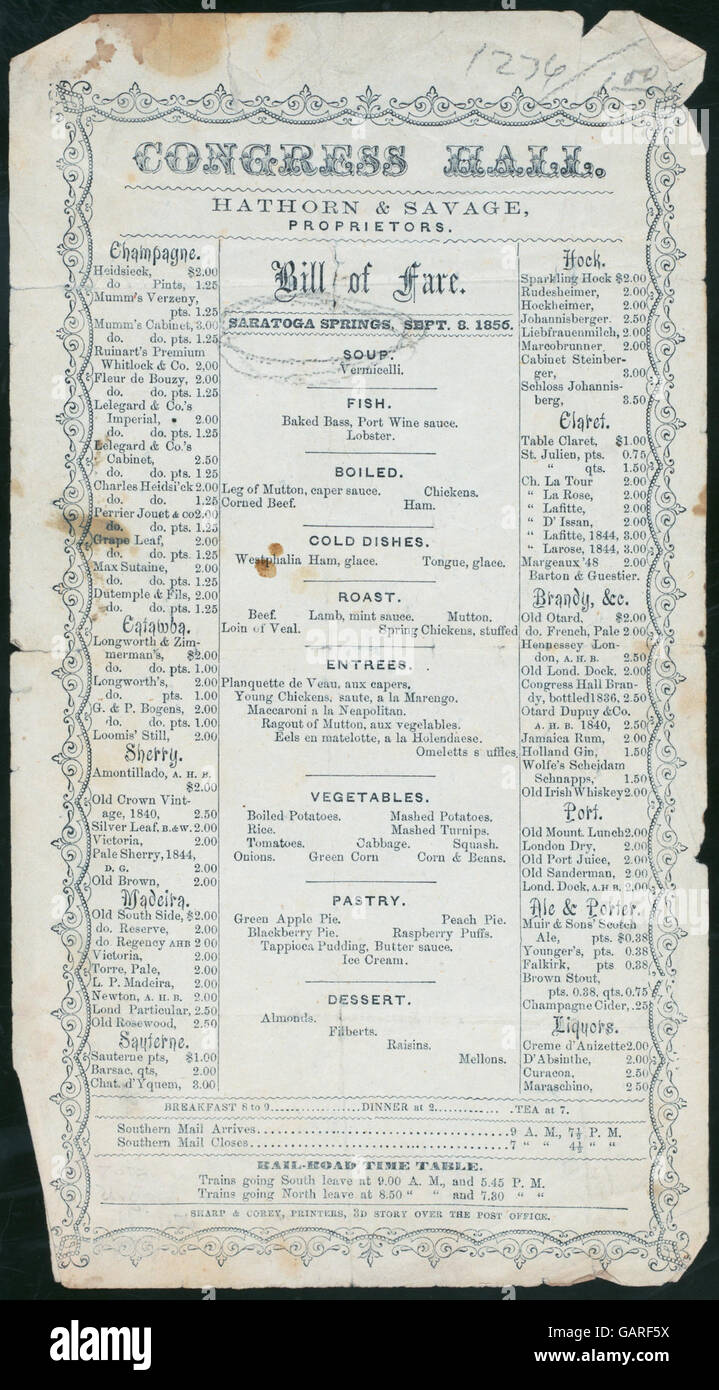 1236/1.00
CONGRESS HALL.
HATHORN & SAVAGE,
PROPRIETORS.
Champagne.
Heidsieck, $2.00
do Pints, 1.25
Mumm's Verzeny,
pts. 1.25
Mumm's Cabinet, 3.00
do. do. pts. 1.25
Ruinart's Premium
Whitlock & Co. 2.00
Fleur de Bouzy, 2.00
do. do. pts. 1.25
Lelegard & Co.'s
Imperial, 2.00
do. do. pts. 1.25
Lelegard & Co.'s
Cabinet, 2.50
do. do. pts. 1.25
Charles Heidsi'ck 2.00
do. do. 1.25
Perrier Jouet & co 2.00
do. do. pts. 1.25
Grape Leaf, 2.00
do. do. pts. 1.25
Max Sutaine, 2.00
do. do. pts. 1.25
Dutemple & Fils, 2.00
do. do. pts. 1.25
Catawba.
Longworth & Zim-
merman's, $2.00
do. do. pts. 1.00
Longworth's, 2.00
do. pts. 1.00
G. & P. Bogens, 2.00
do. do. pts. 1.00
Loomis' Still, 2.00
Sherry.
Amontillado, A. H. B.
$2.00
Old Crown Vint-
age, 1840, 2.50
Silver Leaf, B.&W. 2.00
Victoria, 2.00
Pale Sherry, 1844,
D. G. 2.00
Old Brown, 2.00
Madeira.
Old South Side, $2.00
do. Reserve, 2.00
do Regency AHB 2 00
Victoria, 2.00
Torre, Pale, 2.00
L. P. Madeira, 2.00
Newton, A. H. B. 2.00
Lond Particular, 2.50
Old Rosewood, 2.50
Sauterne.
Sauterne pts, $1.00
Barsac, qts, 2.00
Chat. d'Yquem, 3.00
Bill of Fare.
SARATOGA SPRINGS, SEPT. 8. 1856.
SOUP.
Vermicelli.
FISH.
Baked Bass, Port Wine sauce.
Lobster.
BOILED.
Leg of Mutton, caper sauce. Chickens.
Corned Beef. Ham.
COLD DISHES.
Westphalia Ham, glace. Tongue, glace.
ROAST.
Beef. Lamb, mint sauce. Mutton.
Loin of Veal. Spring Chickens, stuffed
ENTREES.
Planquette de Veau, aux capers,
Young Chickens, saute, a la Marengo.
Maccaroni a la Neapolitan.
Ragout of Mutton, aux vegelables.
Eels en matelotte, a la Holendaese.
Omeletts s uffles,
VEGETABLES.
Boiled Potatoes. Mashed Potatoes.
Rice. Mashed Turnips.
Tomatoes. Cabbage. Squash.
Onions. Green Corn Corn & Beans.
PASTRY.
Green Apple Pie. Peach Pie.
Blackberry Pie. Raspberry Puffs.
Tappioca Pudding, Butter sauce.
Ice Cream.
DESSERT.
Almonds.
Filberts.
Raisins.
Mellons.
Hock.
Sparkling Hock $2.00
Rudesheimer, 2.00
Hockheimer, 2.00
Johannisberger. 2.50
Liebfrauenmilch, 2.00
Marcobrunner 2.00
Cabinet Steinber-
ger, 3.00
Schloss Johannis-
berg, 3.50
Claret.
Table Claret, $1.00
St. Julien, pts. 0.75
" qts. 1.50
Ch. La Tour 2.00
" La Rose, 2.00
" Lafitte, 2.00
" D' Issan, 2.00
" Lafitte, 1844, 3.00
" Larose, 1844, 3.00
Margeaux '48 2.00
Barton & Guestier.
Brandy, &c.
Old Otard, $2.00
do. French, Pale 2 00
Hennessey Lon-
don, A. H. B. 2.50
Old Lond. Dock. 2.00
Congress Hall Bran-
dy, bottled 1836, 2.50
Otard Dupuy & Co.
A. H. B. 1840, 2.50
Jamaica Rum, 2.00
Holland Gin, 1.50
Wolfe's Scheidam
Schnapps, 1.50
Old Irish Whiskey 2.00
Port.
Old Mount. Lunch 2.00
London Dry, 2.00
Old Port Juice, 2.00
Old Sanderman, 2.00
Lond. Dock, A.H B. 2,00
Ale & Porter.
Muir & Sons' Scotch
Ale, pts. $0.38
Younger's, pts. 0.38
Falkirk, pts 0.38
Brown Stout,
pts. 0.38, qts. 0.75
Champagne Cider, .25
Liquors.
Creme d'Anizette 2.00
D'Absinthe, 2.00
Curacoa, 2.50
Maraschino, 2 50
BREAKFAST 8 to 9................DINNER at 2.............TEA at 7.
Southern Mail Arrives........................................9 A. M., 7½ P. M.
Southern Mail Closes.........................................7 " " 4½ " "
RAIL-ROAD TIME TABLE.
Trains going South leave at 9.00 A. M., and 5.45 P. M.
Trains going North leave at 8.50 " " and 7.30 " "
SHARP & COREY, PRINTERS, 3D STORY OVER THE POST OFFICE.
alamy
alamy
Image ID: GARF5X
www.alamy.com